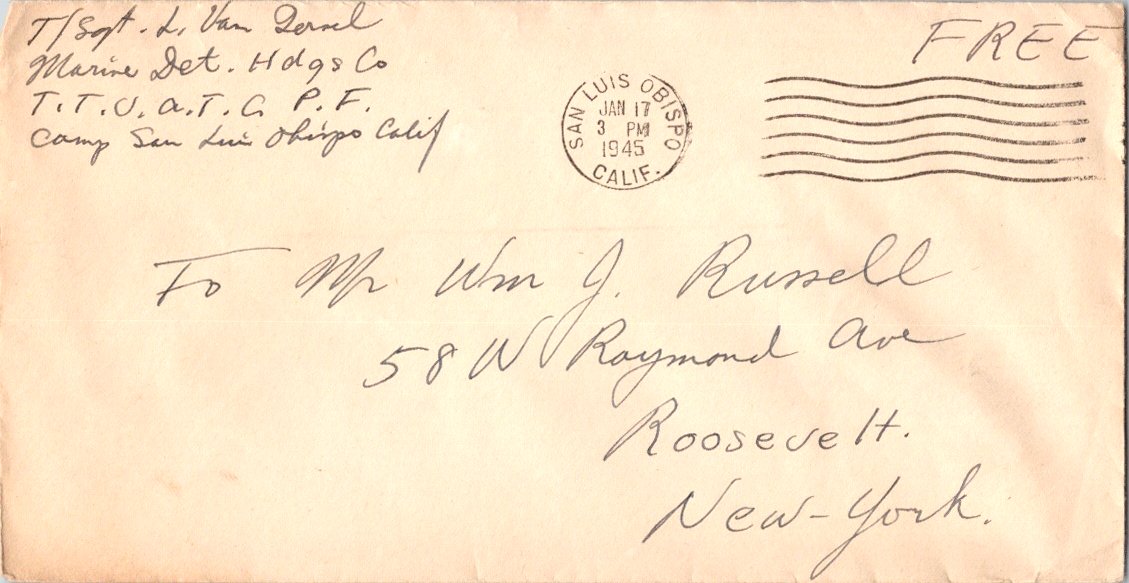 T/Sgt. L. Van Dersel
Marine Det. Hdqs Co
T.T.U.A.T.C. P.F.
Camp San Luis Obispo Calif
FREE
SAN LUIS OBISPO
JAN 17
3 PM
1945
CALIF.
To Mr Wm J. Russell
58 W Raymond Ave
Roosevelt.
New-York.